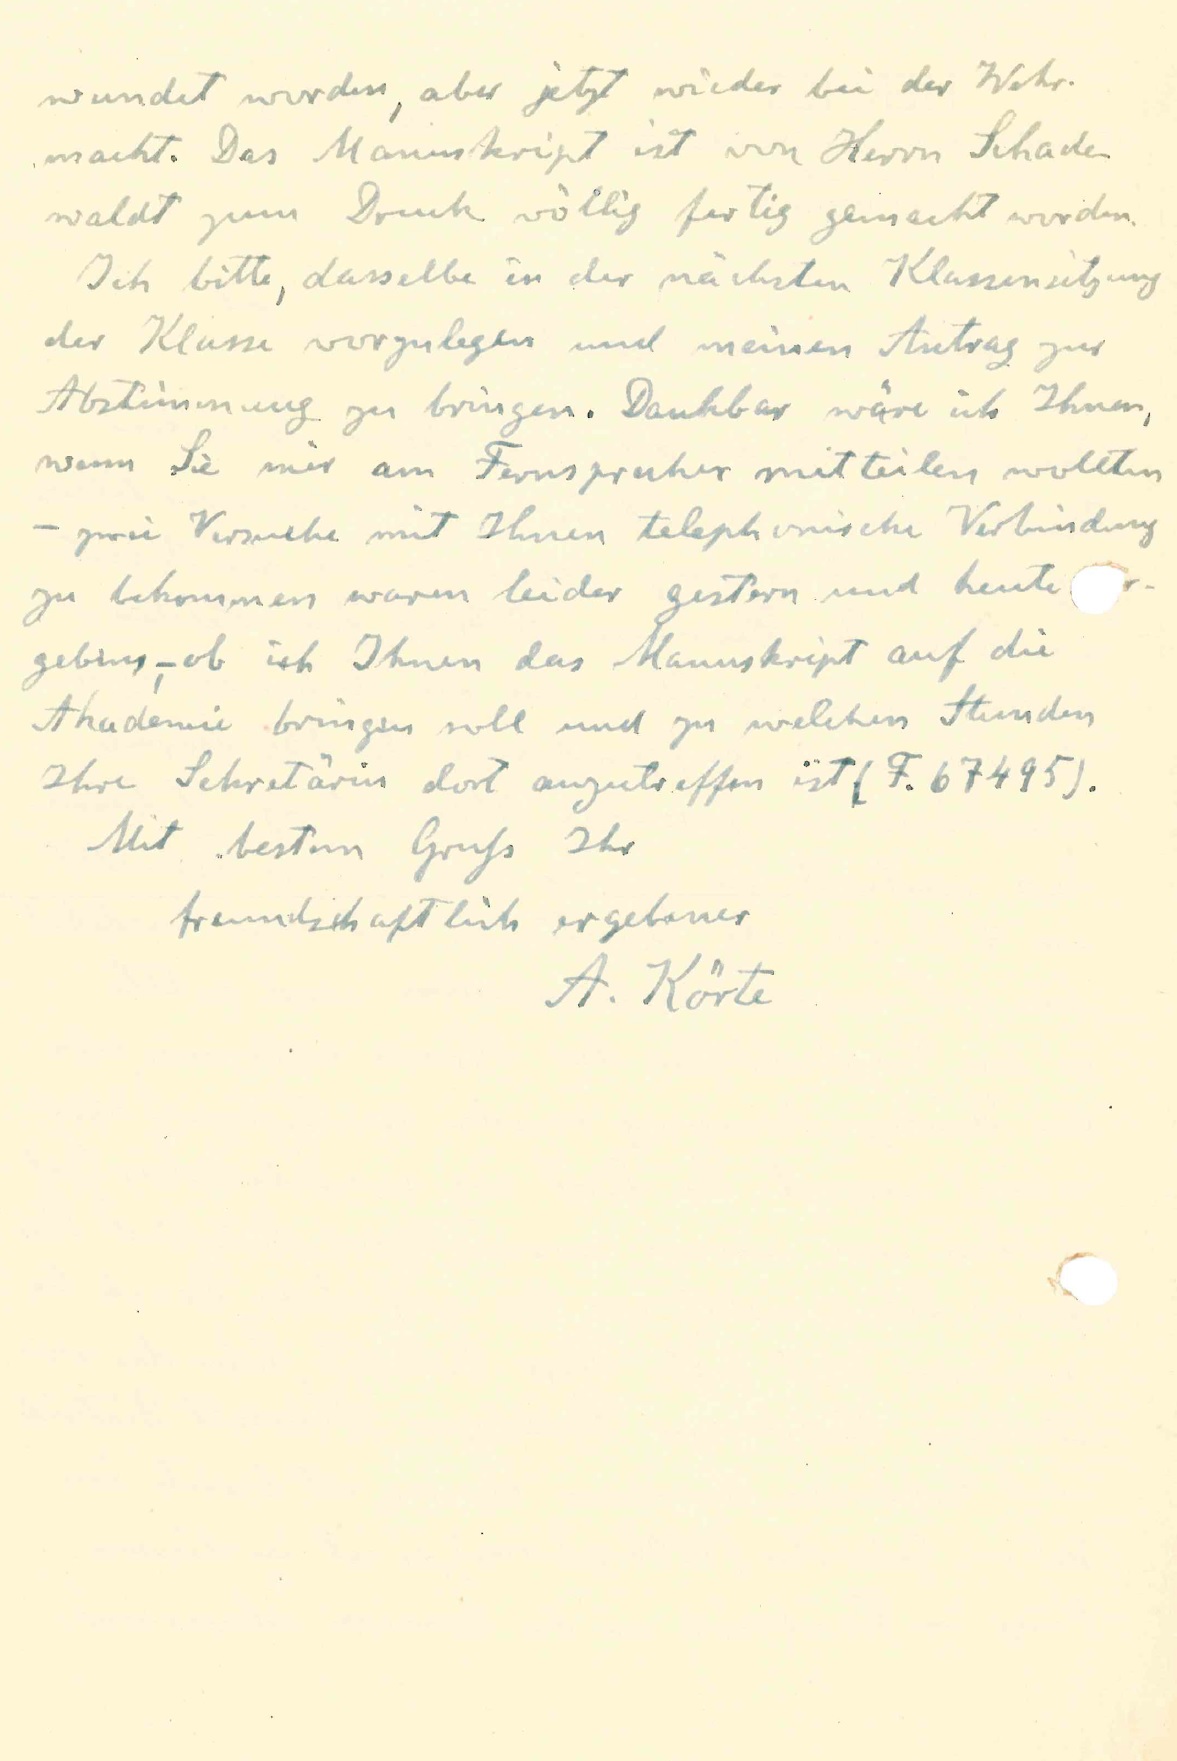 wundet worden, aber jetzt wieder bei der Wehr-
macht. Das Manuskript ist von Herrn Schade-
waldt zum Druck völlig fertig gemacht worden.
Ich bitte, dasselbe in der nächsten Klassensitzung
der Klasse vorzulegen und meinen Antrag zur
Abstimmung zu bringen. Dankbar wäre ich Ihnen,
wenn Sie mir am Fernsprecher mitteilen wollten
– zwei Versuche mit Ihnen telephonische Verbindung
zu bekommen waren leider gestern und heute r-
gebens, – ob ich Ihnen das Manuskript auf die
Akademie bringen soll und zu welchen Stunden
Ihre Sekretärin dort anzutreffen ist (F. 67495).
Mit bestem Gruß Ihr
freundschaftlich ergebener
A. Körte